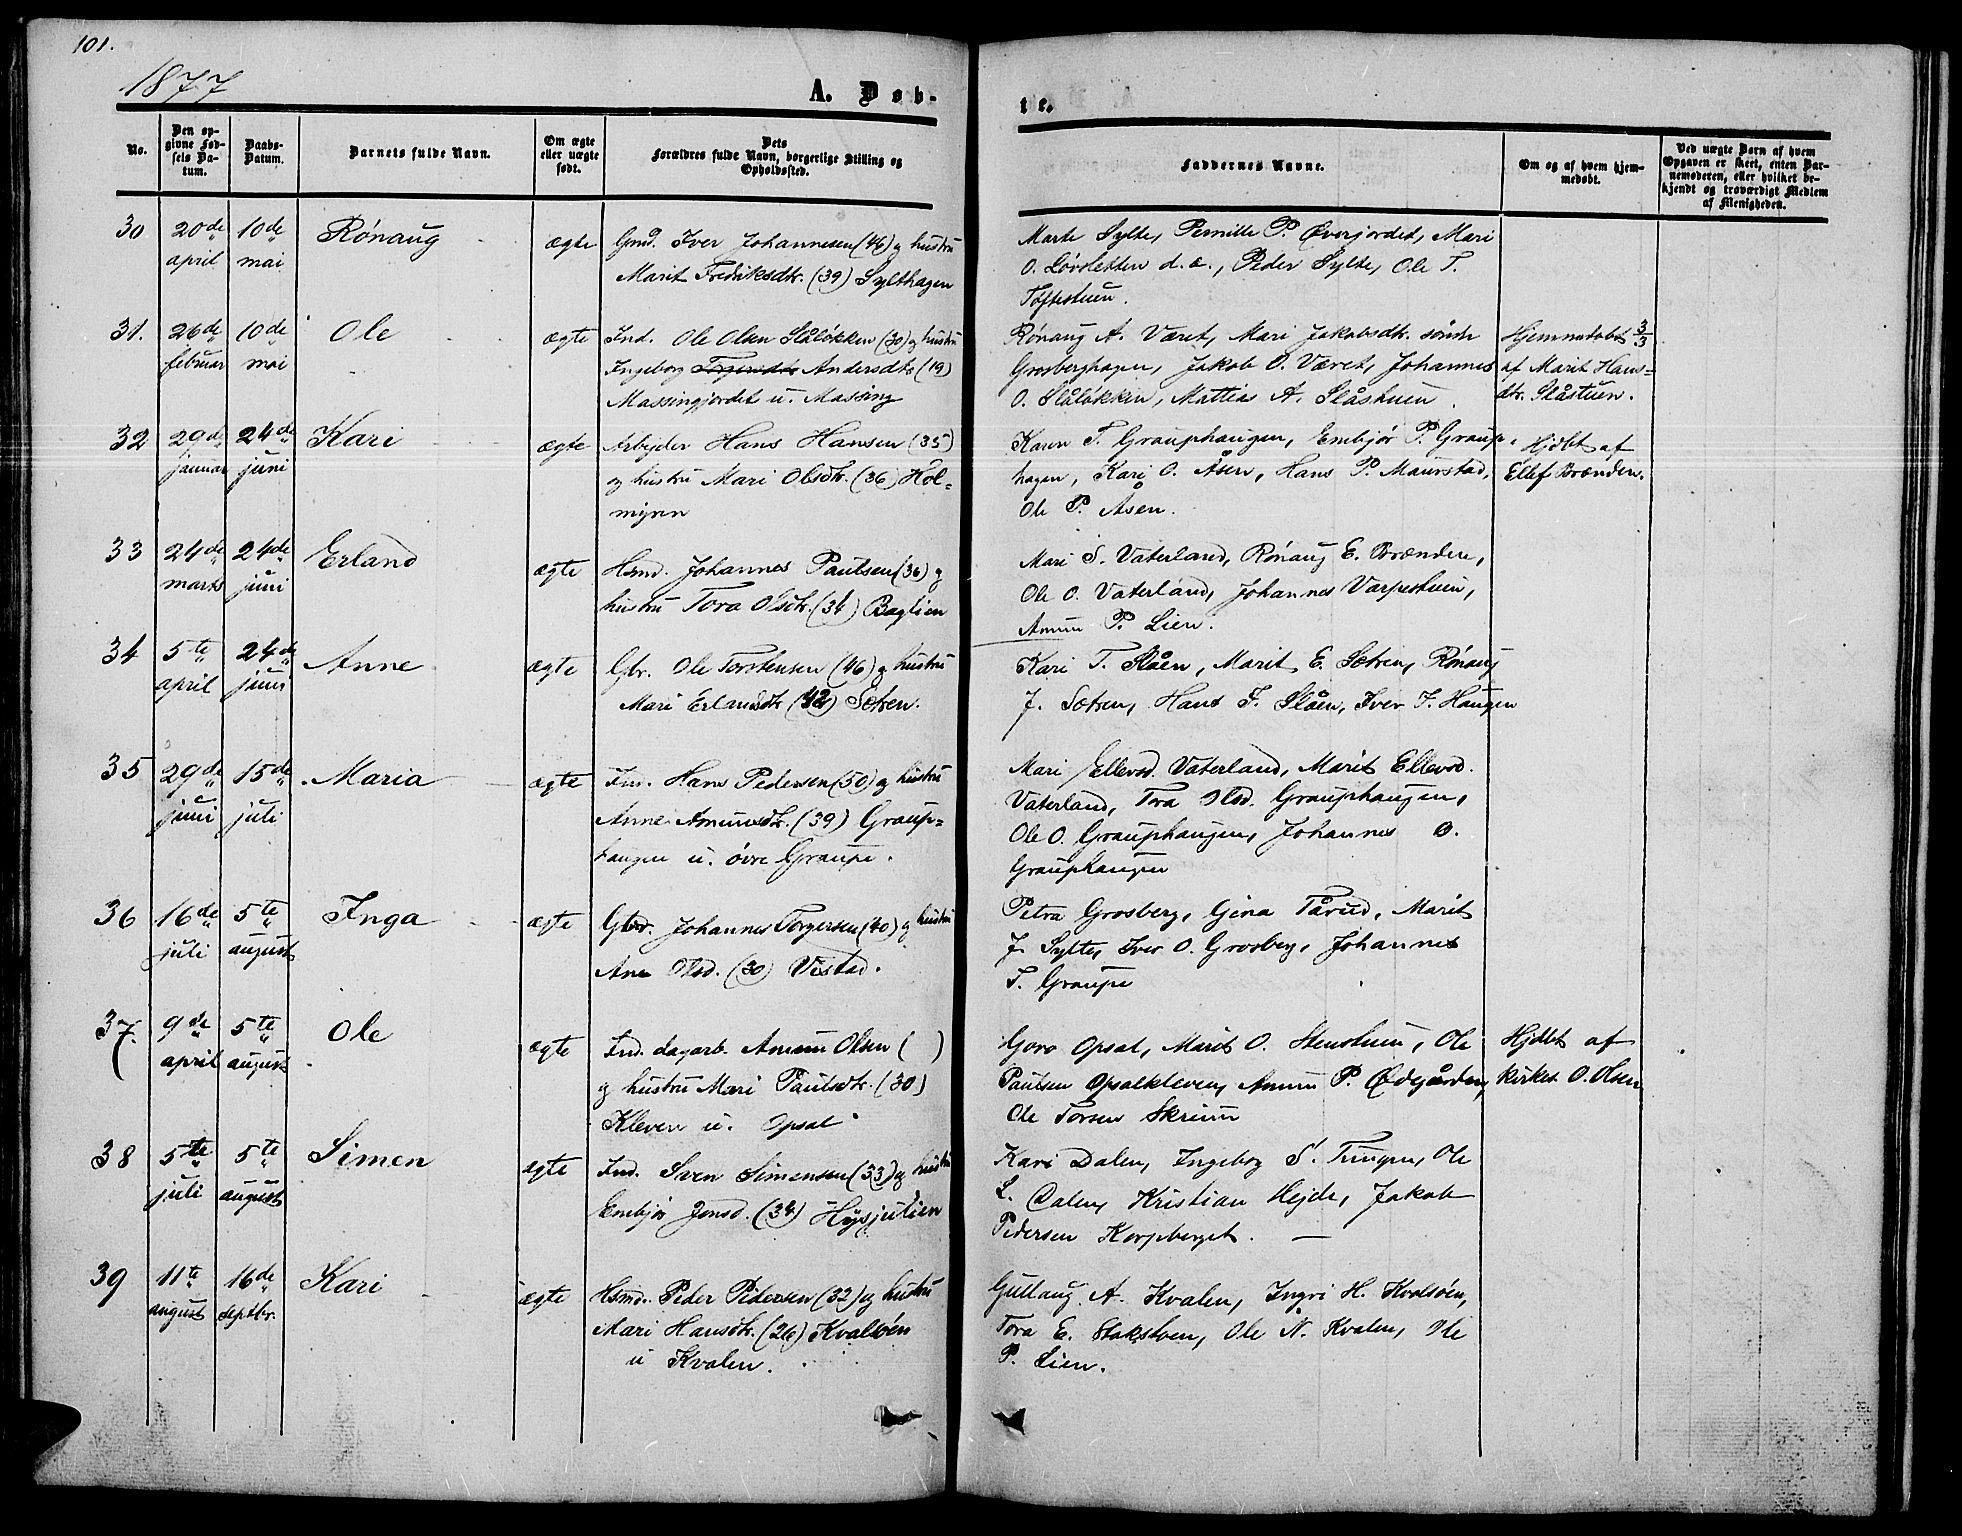 101.
1877
A. Døb-
te.
No.
Den op-
givne Fød-
sels Da-
tum.
Daabs-
Datum.
Barnets fulde Navn.
Om ægte
eller uægte
født.
Dets
Forældres fulde Navn, borgerlige Stilling og
Opholdssted.
Faddernes Navne.
Om og af hvem hjem-
medøbt.
Ved uægte Barn af hvem
Opgaven er skeet, enten Bar-
nemoderen, eller hvilket be-
kjendt og troværdigt Medlem
af Menigheden.
30
20de
april
10de
mai
Rónaug
ægte
Gmd. Iver Johannesen (46) g hustru
Marit Fredriksdtr. (39) Sylthagen
Marte Sylte, Pernille P. Øverjordet, Mari
O. Lövsletten d.æ., Peder Sylte, Ole T.
Toftestuen.
31.
26de
februar
10de
mai
Ole
ægte
Ind. Ole Olsen Slåløkken (30) g hustru
Ingeborg Andersdtr (19)
Massingjordet u. Massing
Rónaug A. Været, Mari Jakobsdtr. søndr
Grosberghagen, Jakob O. Været, Johannes
O. Slåløkken, Mattias A. Slåstuen.
Hjemmedøbt 3/3
af Marit Hans=
dtr. Slåstuen.
32
29de
januar
24de
juni
Kari
ægte
Arbejder Hans Hansen (35)
og hustru Mari Olsdtr. (36) Hol=
myren
Karen T. Grauphaugen, Embjør P. Graup-
hagen, Kari O. Åsen, Hans P. Maurstad,
Ole P. Åsen.
Hjdbt af
Ellef Brænden.
33
24de
marts
24de
juni
Erland
ægte
Hsmd. Johannes Paulsen (36) g
hustru Tora Olsdtr. (34) Baglien
Mari S. Vaterland, Rónaug E. Brænden,
Ole O. Vaterland, Johannes Varpestuen,
Amun P. Lien.
34
5te
april
24de
juni
Anne
ægte
Gbr. Ole Torstensen (46) g hustru
Mari Erlandsdtr. (42) Sætren.
Kari T. Slåen, Marit E. Sætren, Rónaug
J. Sætren, Hans F. Slåen, Iver J. Haugen
35
29de
juni
15de
juli
Maria
ægte
Ind. Hans Pedersen (50) g hustru
Anne Amunsdtr. (39) Graup=
haugen u. øvre Graupe.
Mari Ellevsd. Vaterland, Marit Ellevsd.
Vaterland, Tora Olsd. Grauphaugen,
Ole O. Grauphaugen, Johannes O.
Grauphaugen
36
16de
juli
5te
august
Inga
ægte
Gbr. Johannes Torgersen (40) g hustru
Ane Olsd. (30) Vistad.
Petra Grosberg, Gina Tårud, Marit
J. Sylte, Iver O. Grosberg, Johannes
T. Graupe
37.
9de
april
5te
august
Ole
ægte
Ind. dagarb. Amun Olsen ( )
g hustru Mari Paulsdtr. (30)
Kleven u. Opsal
Goro Opsal, Marit O. Stenstuen, Ole
Paulsen Opsalkleven, Amun P. Ødegården,
Ole Torsen Skrium
Hjdbt af
kirkes. O. Olsen
38
5te
juli
5te
august
Simen
ægte
Ind. Sven Simensen (33) g hustru
Embjør Jonsd. (34) Høgsjulien
Kari Dalen, Ingeborg S. Tungen, Ole
L. Dalen, Kristian Hejde, Jakob
Pedersen Korpberget. —
39
11te
august
16de
septbr.
Kari
ægte
Hsmd. Peder Pedersen (32) og hustru
Mari Hansdtr. (26) Kvalsöen
u Kvalen.
Gullaug A. Kvalen, Ingri H. Kvalsöen,
Tora E. Stakstuen, Ole N. Kvalen, Ole
P. Lien.